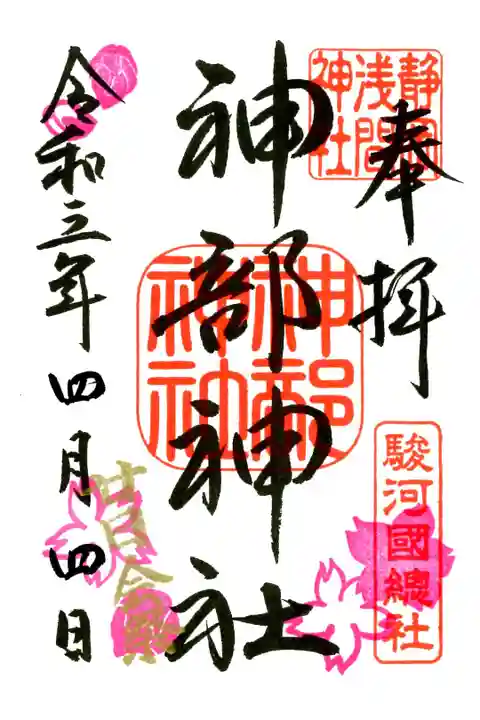 奉拝
静岡浅間神社
駿河國總社
神部神社
神部神社
令和三年四月四日
廿日会祭